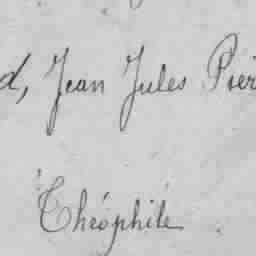 d, Jean Jules Pier
Théophile